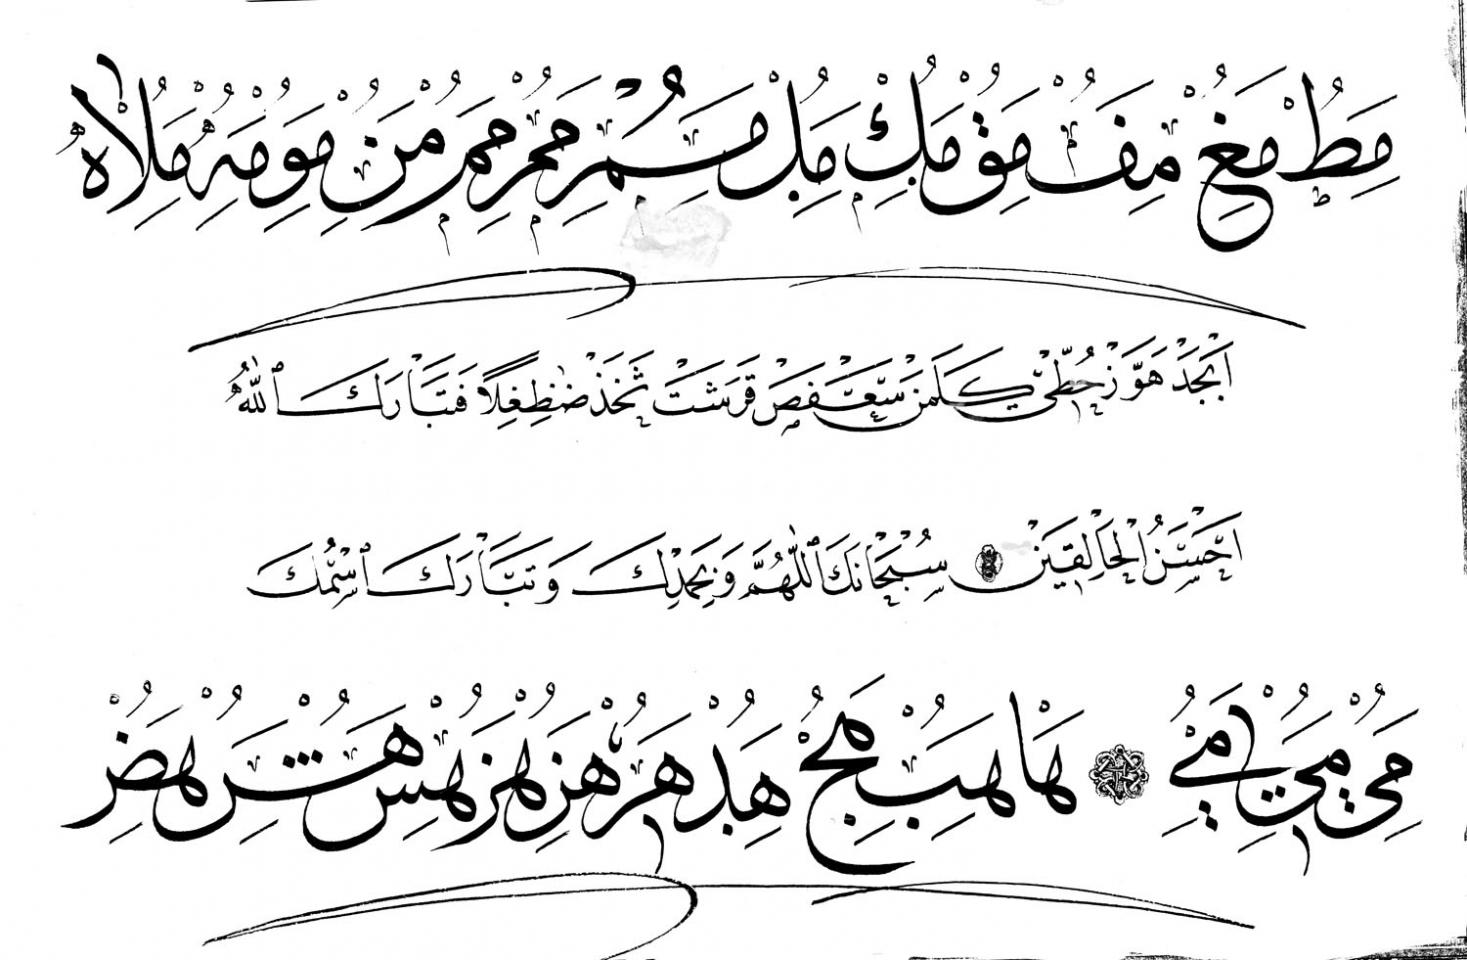 مط مغ مف مق مك مل مسم مم مم من مو مه ملاه
اَبْجَدْ هَوَّزْ حُطِّىْ كَلَمَنْ سَعَّفَصْ قَرَشَتْ ثَخَذْ ضَظِغِلاً فَتَبَارَكَ ٱللّٰهُ
اَحْسَنُ الْخَالِقِينَ سُبْحَانَكَ ٱللّٰهُمَّ وَبِحَمْدِكَ وَتَبَارَكَ ٱسْمُكَ
مى مى مى ها هب هج هد هر هز هز هس هش هض